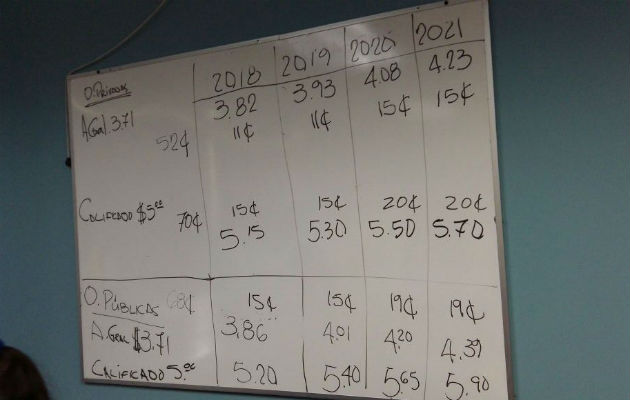 2018 2019 2020 2021
O. Privadas 3.82 3.93 4.08 4.23
A Gral 3.71 11¢ 11¢ 15¢ 15¢
52¢
Calificado $5.00 70¢ 15¢ 15¢ 20¢ 20¢
5.15 5.30 5.50 5.70
O. Públicas 68¢ 15¢ 15¢ 19¢ 19¢
A. Gral $3.71 3.86 4.01 4.20 4.39
Calificado 5.00 5.20 5.40 5.65 5.90